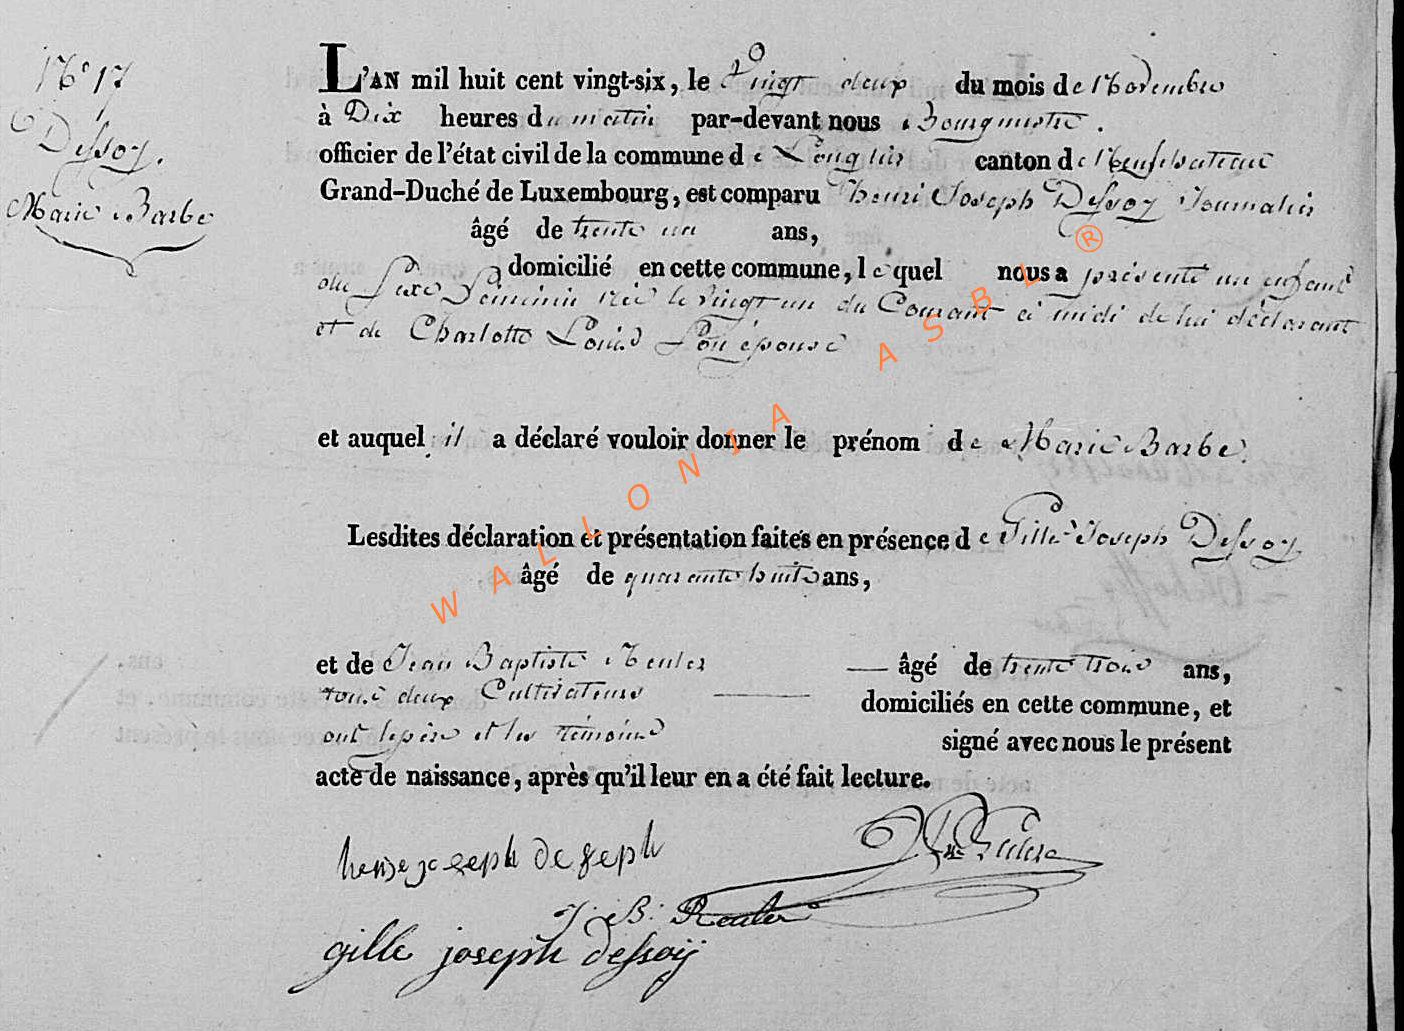 N° 17
Dessoy.
Marie Barbe
L'AN mil huit cent vingt-six, le Vingt deux du mois de Novembre
à Dix heures du matin par-devant nous Bourgmestre.
officier de l'état civil de la commune de Longlier canton de Neufchateau
Grand-Duché de Luxembourg, est comparu henri Joseph Dessoy Journalier
âgé de trente un ans,
domicilié en cette commune, lequel nous a présenté un enfant
du Sexe Féminin née le vingt un du Courant à midi de lui déclarant
et de Charlotte Louis Son épouse
et auquel il a déclaré vouloir donner le prénom de Marie Barbe.
Lesdites déclaration et présentation faites en présence de Gille Joseph Dessoy
âgé de quarante huit ans,
et de Jean Baptiste Reuler — âgé de trente trois ans,
tous deux Cultivateurs — domiciliés en cette commune, et
ont le père et les témoins signé avec nous le présent
acte de naissance, après qu'il leur en a été fait lecture.
J: B: Reuler
gille joseph dessoÿ
WALLONIA ASBL ®